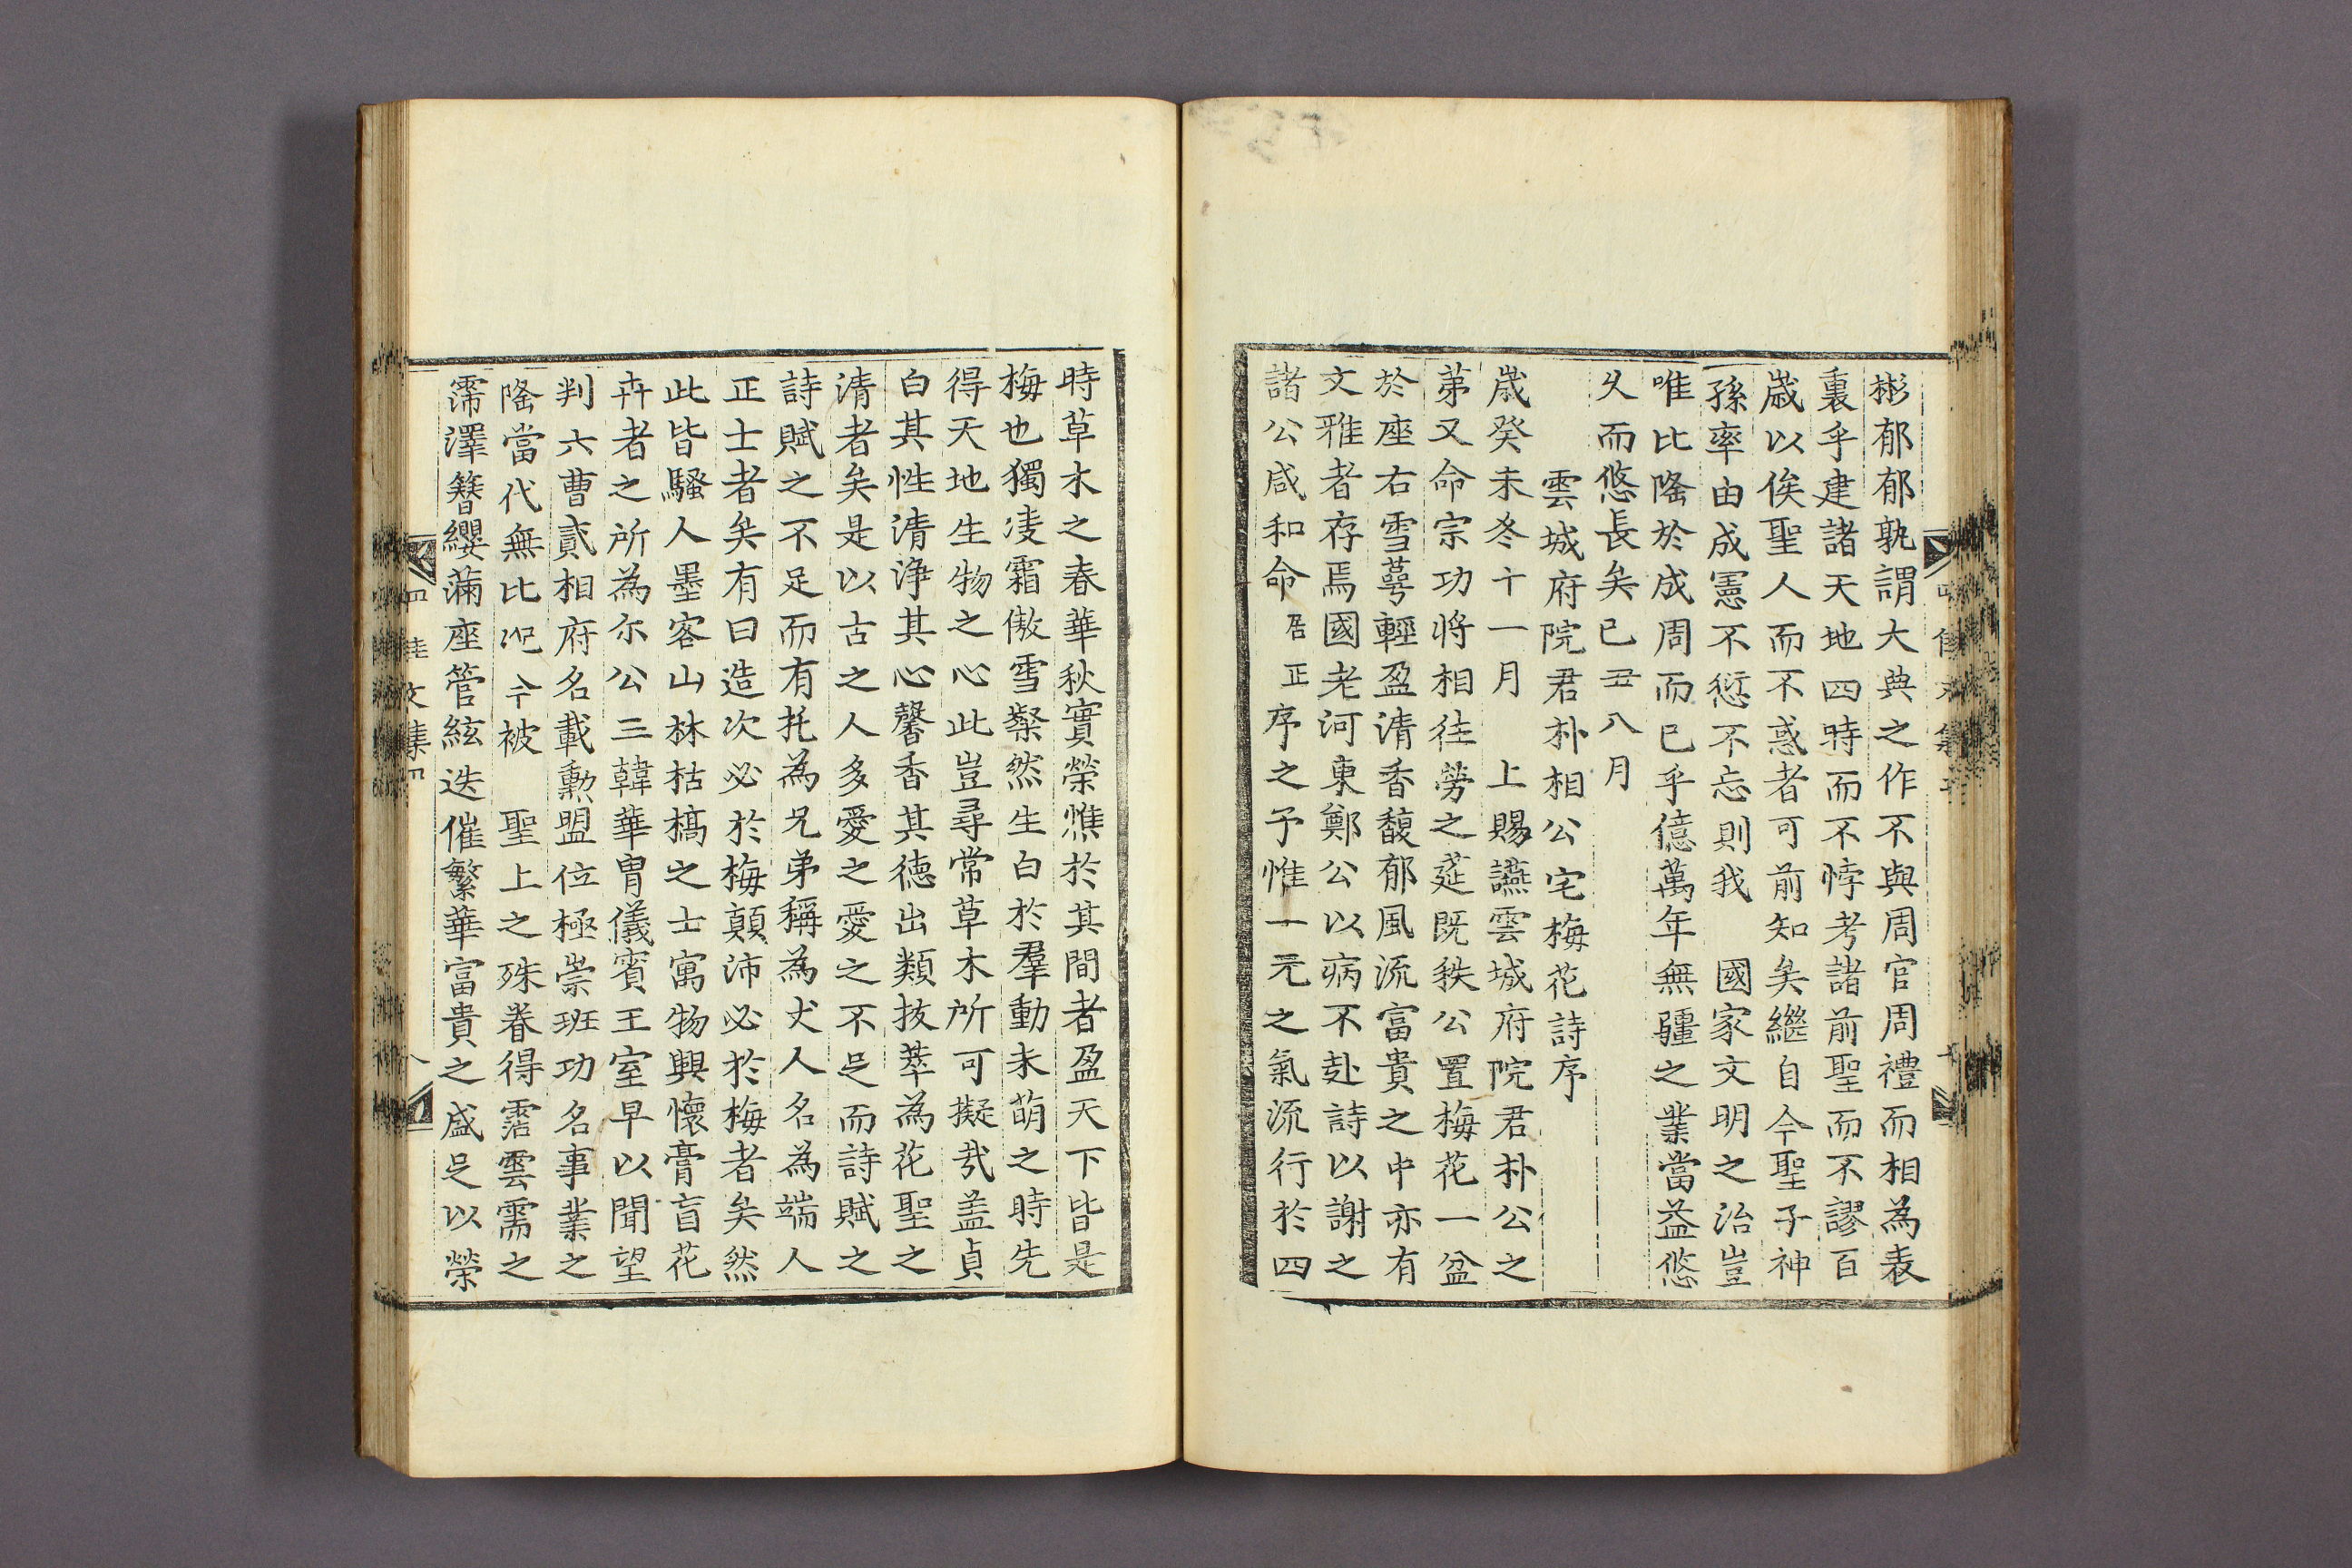 彬郁郁孰謂大典之作不與周官周禮而相為表
裏乎建諸天地四時而不悖考諸前聖而不謬百
歲以俟聖人而不惑者可前知矣繼自今聖子神
孫率由成憲不愆不忘則我 國家文明之治豈
唯比隆於成周而已乎億萬年無疆之業當益悠
久而悠長矣已丑八月
雲城府院君朴相公宅梅花詩序
歲癸未冬十一月 上賜讌雲城府院君朴公之
第又命宗功將相徃勞之莚既秩公置梅花一盆
於座右雪萼輕盈清香馥郁風流富貴之中亦有
文雅者存焉國老河東鄭公以病不赴詩以謝之
諸公咸和命居正序之予惟一元之氣流行於四
時草木之春華秋實榮憔於其間者盈天下皆是
梅也獨凌霜傲雪粲然生白於羣動未萌之時先
得天地生物之心此豈尋常草木所可擬㢤盖貞
白其性清浄其心馨香其德出類拔萃為花聖之
清者矣是以古之人多愛之愛之不足而詩賦之
詩賦之不足而有托為兄弟稱為丈人名為端人
正士者矣有曰造次必於梅顛沛必於梅者矣然
此皆騷人墨客山林枯槁之士寓物興懷膏盲花
卉者之所為尔公三韓華胄儀賓王室早以聞望
判六曹貳相府名載勳盟位極崇班功名事業之
隆當代無比况今被 聖上之殊眷得霑雲需之
霈澤簪纓滿座管絃迭催繁華富貴之盛足以榮
四佳文集四 八